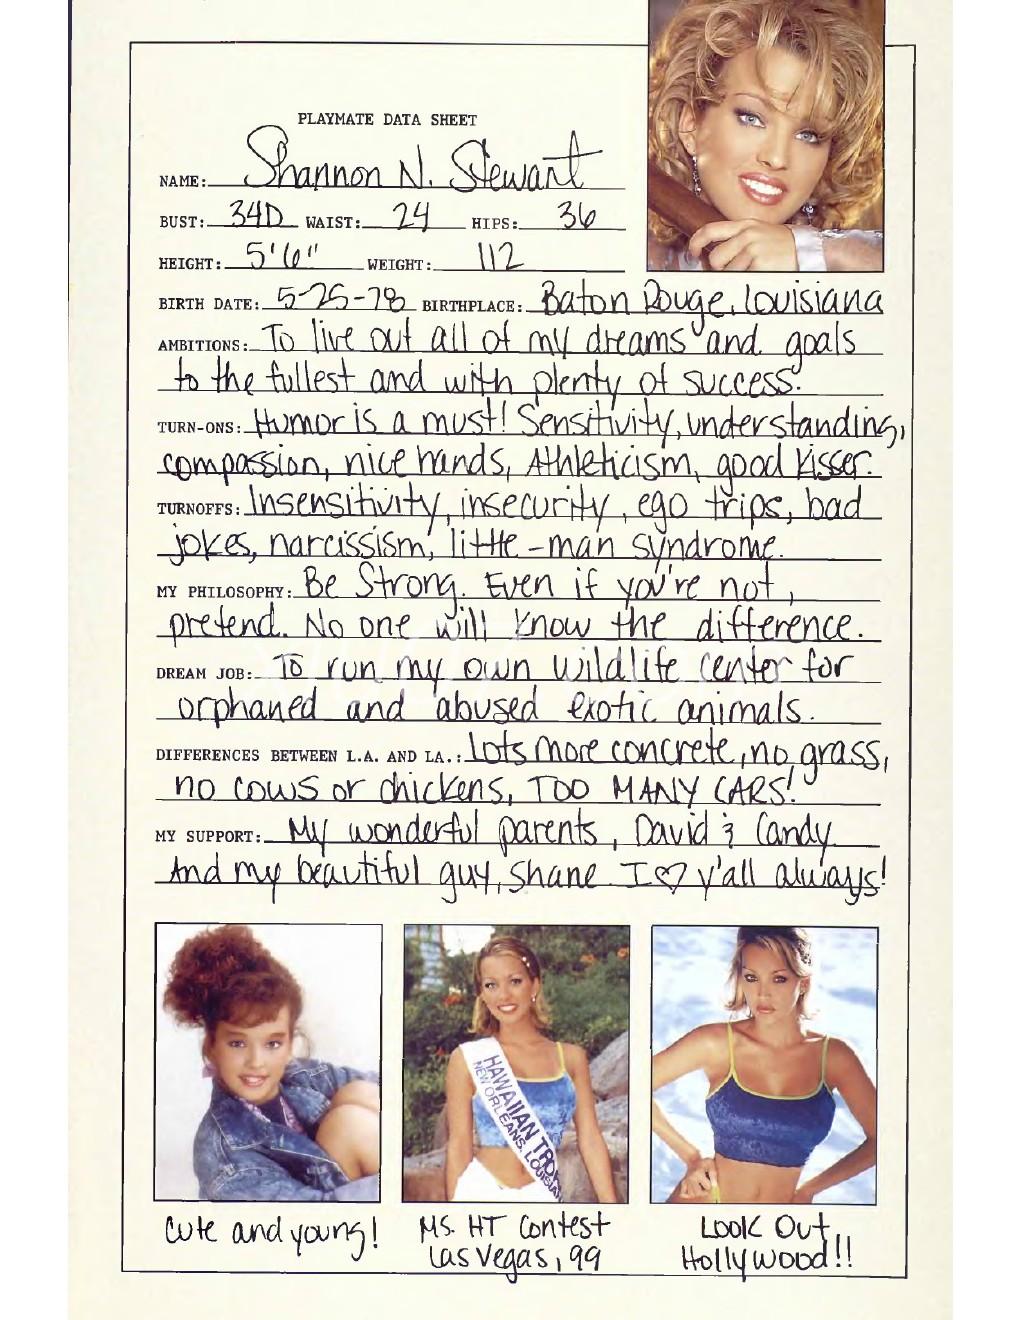 PLAYMATE DATA SHEET
NAME: Shannon N. Stewart
BUST: 34D WAIST: 24 HIPS: 36
HEIGHT: 5'6" WEIGHT: 112
BIRTH DATE: 5-25-78 BIRTHPLACE: Baton Rouge, Louisiana
AMBITIONS: To live out all of my dreams and goals
to the fullest and with plenty of success.
TURN-ONS: Humor is a must! Sensitivity, understanding,
compassion, nice hands, Athleticism, good kisser.
TURNOFFS: Insensitivity, insecurity, ego trips, bad
jokes, narcissism, little-man syndrome.
MY PHILOSOPHY: Be Strong. Even if you're not,
pretend. No one will know the difference.
DREAM JOB: To run my own wildlife center for
orphaned and abused exotic animals.
DIFFERENCES BETWEEN L.A. AND LA.: Lots more concrete, no grass,
no cows or chickens, TOO MANY CARS!
MY SUPPORT: My wonderful parents, David & Candy
And my beautiful guy, Shane I ♡ y'all always!
HAWAIIAN TRO
NEW ORLEANS, LOUISIAN
Cute and young!
Ms. HT Contest
Las Vegas, 99
Look Out,
Hollywood!!